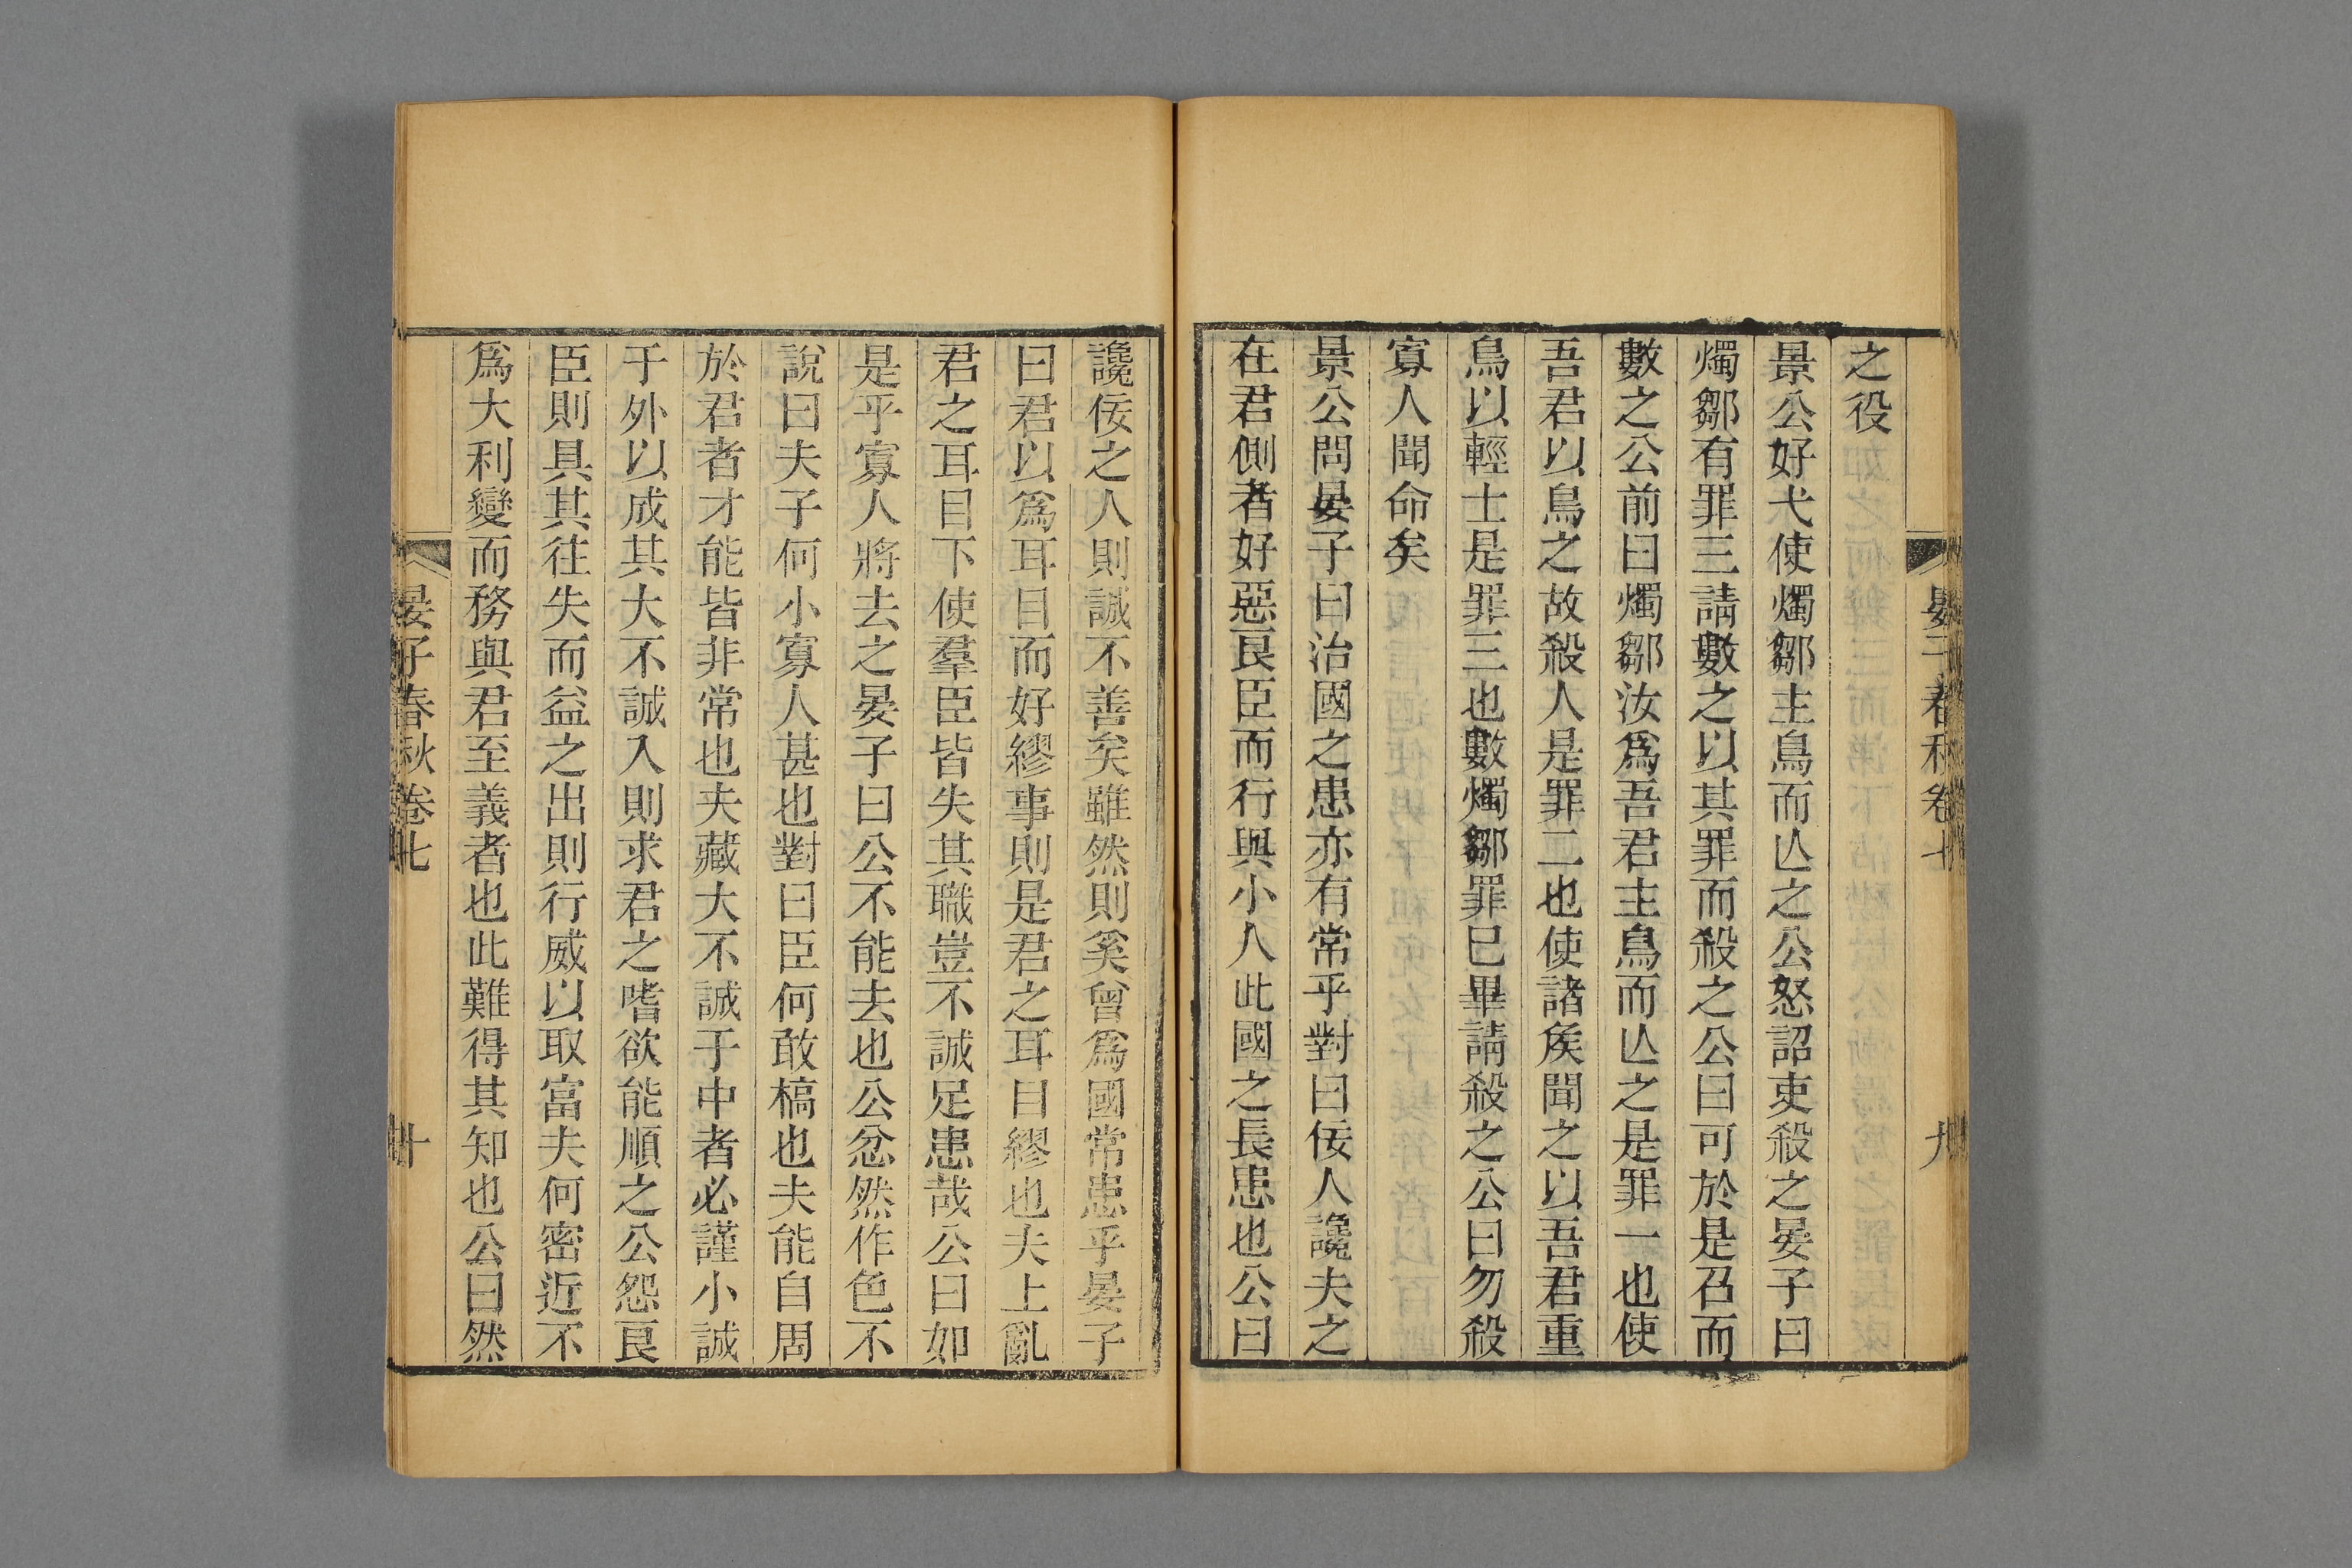 晏子春秋卷七
九
之役
景公好弋使燭鄒主鳥而亾之公怒詔吏殺之晏子曰
燭鄒有罪三請數之以其罪而殺之公曰可於是召而
數之公前曰燭鄒汝爲吾君主鳥而亾之是罪一也使
吾君以鳥之故殺人是罪二也使諸矦聞之以吾君重
鳥以輕士是罪三也數燭鄒罪已畢請殺之公曰勿殺
寡人聞命矣
景公問晏子曰治國之患亦有常乎對曰佞人讒夫之
在君側者好惡良臣而行與小人此國之長患也公曰
讒佞之人則誠不善矣雖然則奚曾爲國常患乎晏子
曰君以爲耳目而好繆事則是君之耳目繆也夫上亂
君之耳目下使羣臣皆失其職豈不誠足患哉公曰如
是乎寡人將去之晏子曰公不能去也公忿然作色不
說曰夫子何小寡人甚也對曰臣何敢槁也夫能自周
於君者才能皆非常也夫藏大不誠于中者必謹小誠
于外以成其大不誠入則求君之嗜欲能順之公怨良
臣則具其往失而益之出則行威以取富夫何密近不
爲大利變而務與君至義者也此難得其知也公曰然
晏子春秋卷七
十